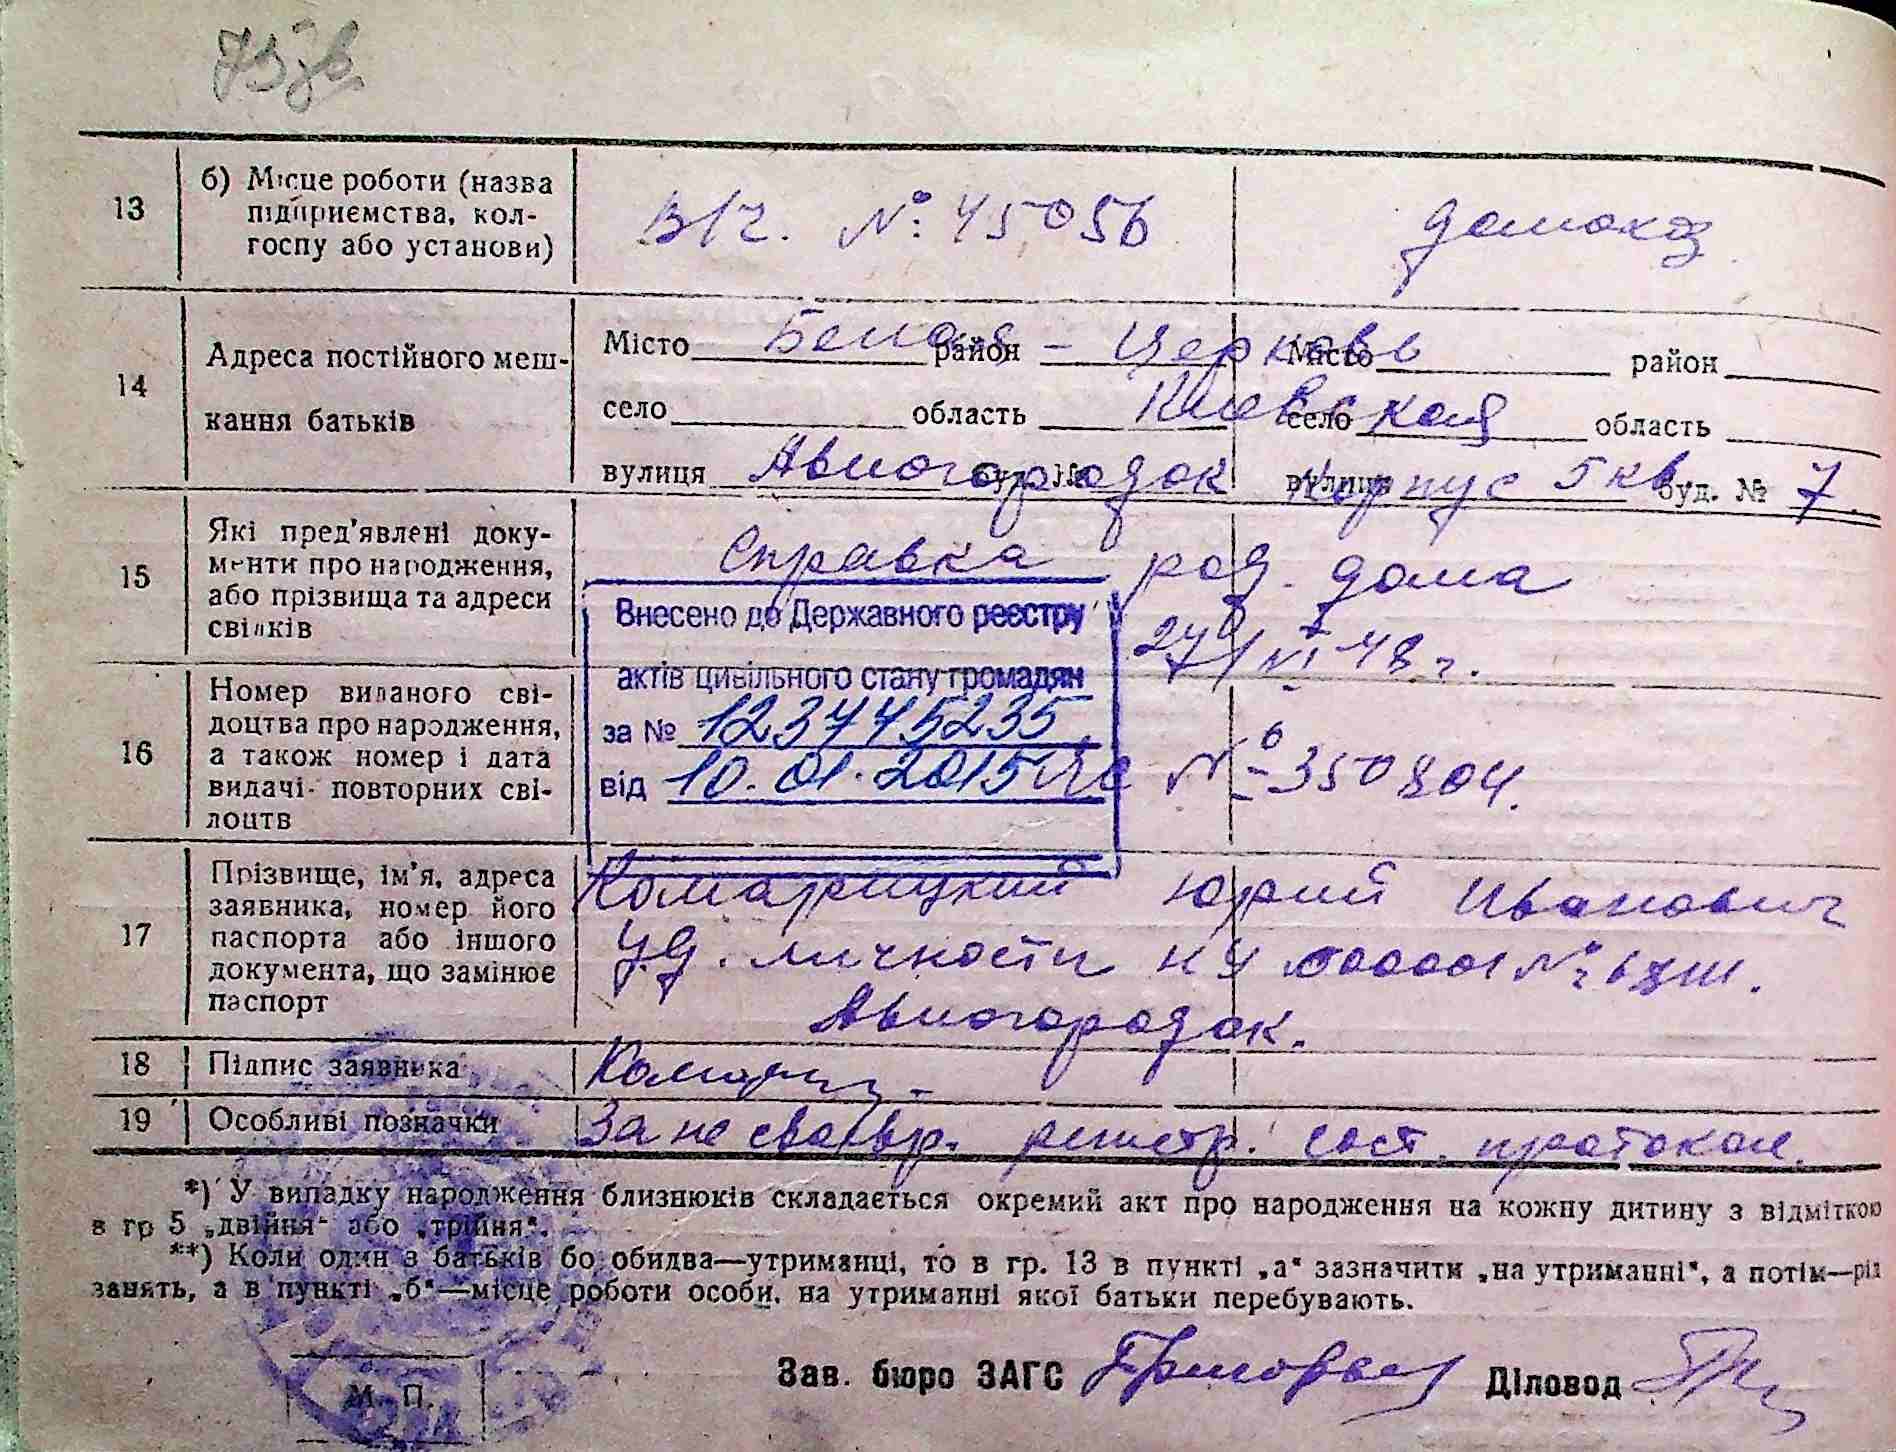 13 б) Місце роботи (назва
підприємства, кол-
госпу або установи)
В/ч. №: 45056
домохоз
14 Адреса постійного меш-
кання батьків
Місто Белая район - Церковь Місто район
село область Киевская село область
вулиця Авиогородок буд. № вулиця корпус 5 кв. буд. № 7
15 Які пред'явлені доку-
менти про народження,
або прізвища та адреси
свідків
Справка род. дома
27/VI 48 г.
Внесено до Державного реєстру
актів цивільного стану громадян
за № 1237745235
від 10.01.2015
16 Номер виданого сві-
доцтва про народження,
а також номер і дата
видачі повторних сві-
доцтв
№ 350804.
17 Прізвище, ім'я, адреса
заявника, номер його
паспорта або іншого
документа, що замінює
паспорт
Комарицкий Юрий Иванович
Уд. личности
Авиогородок.
18 Підпис заявника
19 Особливі позначки
За не своевр. регистр. сост. протокол.
*) У випадку народження близнюків складається окремий акт про народження на кожну дитину з відміткою
в гр 5 „двійня“ або „трійня“.
**) Коли один з батьків бо обидва—утриманці, то в гр. 13 в пункті „а“ зазначити „на утриманні“, а потім—рід
занять, а в пункті „б“—місце роботи особи, на утриманні якої батьки перебувають.
Зав. бюро ЗАГС Діловод
М. П.